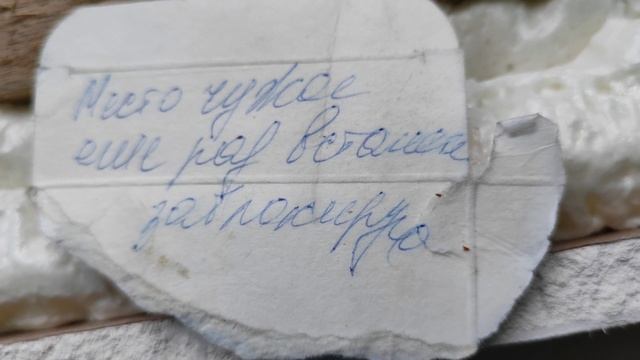 Место чужое
еще раз встанешь
заблокирую